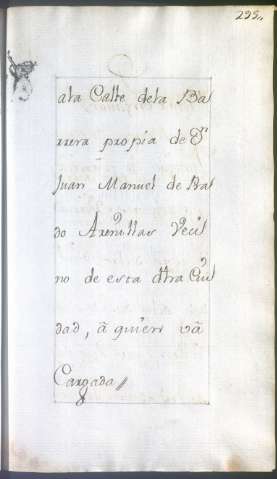 295.
ala Calle dela Ba
rrera propia de Dn
Juan Manuel de Bal
do Arenillas Veci
no de esta dha Ciu
dad, â quien vâ
Cargada //